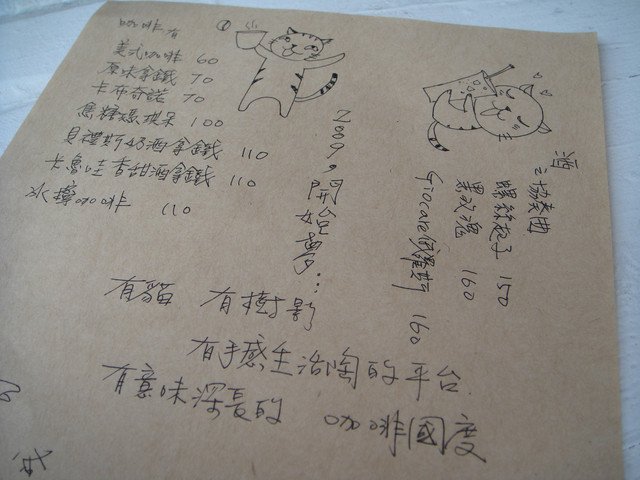 咖啡有
美式咖啡 60
原味拿鐵 70
卡布奇諾 70
焦糖瑪琪朵 100
貝禮斯奶酒拿鐵 110
卡魯哇香甜酒拿鐵 110
冰擇咖啡 110
酒之協奏曲
螺絲起子 150
黑玫瑰 160
Giocare 160
2009,開始夢...
有貓 有樹影
有手感生活陶的平台
有意味深長的 咖啡國度
我